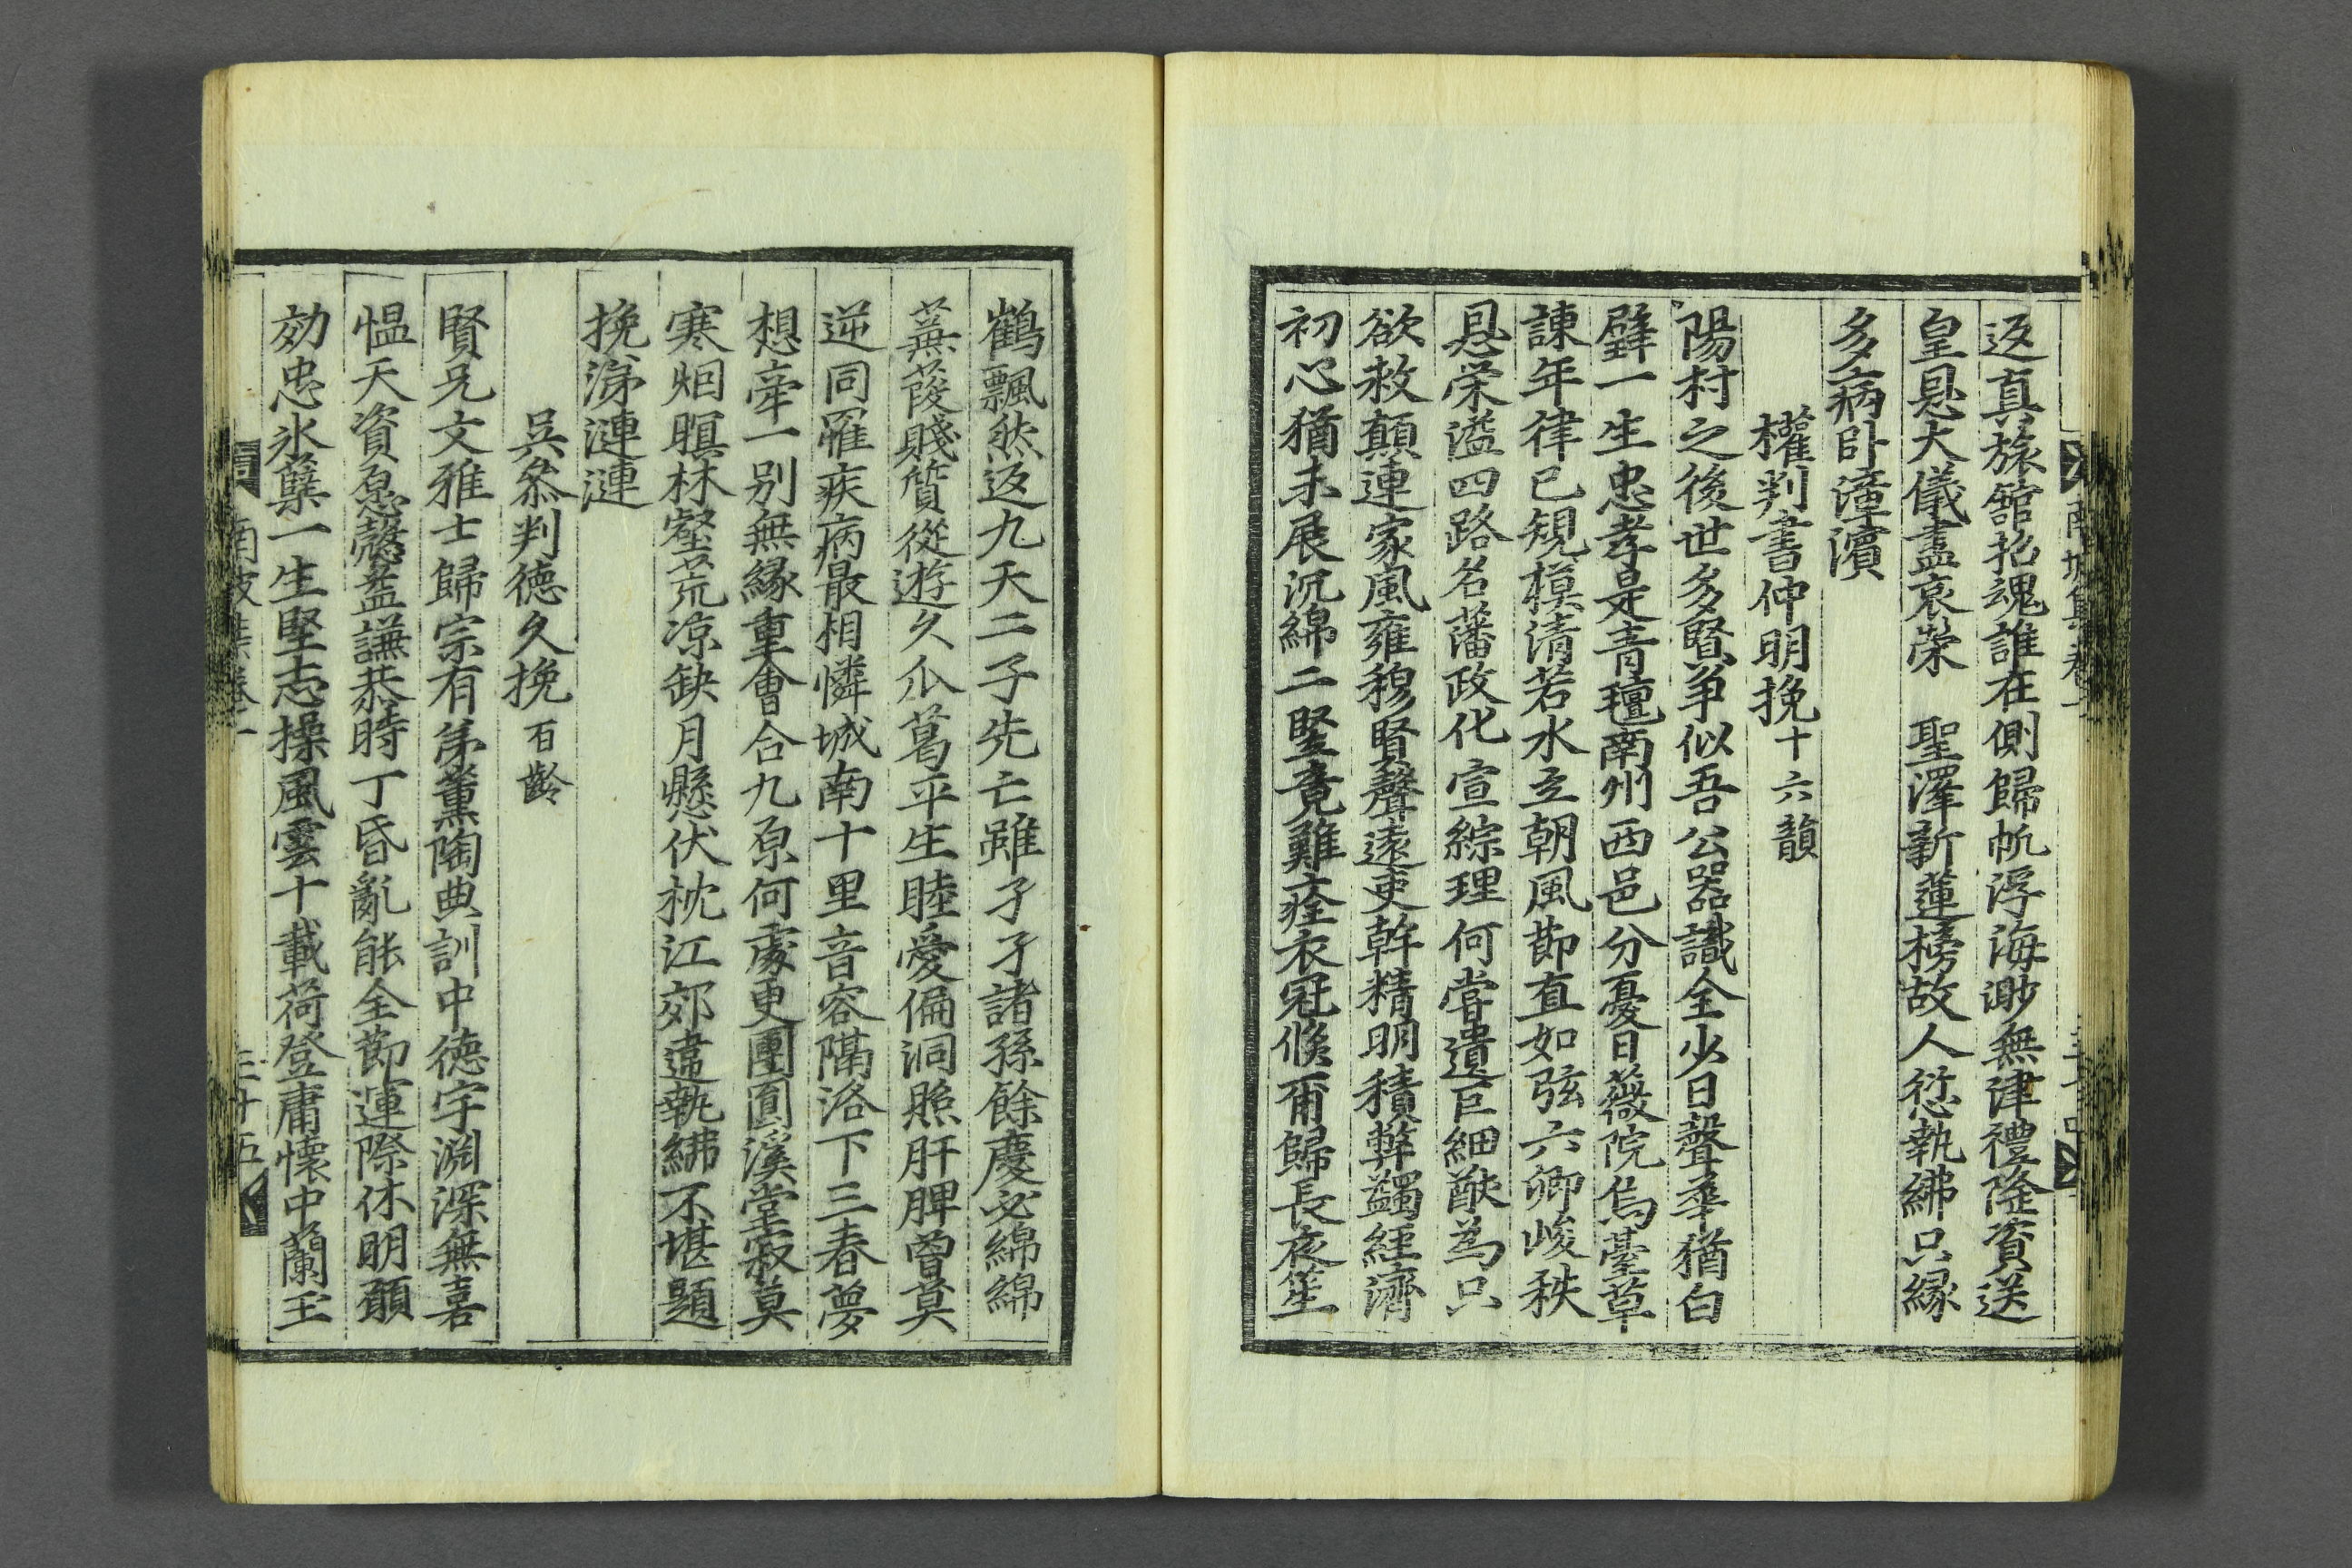 返真旅舘招魂誰在側歸帆浮海渺無津禮隆賓送
皇恩大儀盡哀榮　聖澤新蓮榜故人愆執紼只縁
多病卧漳濱
權判書仲明挽十六韻
陽村之後世多賢爭似吾公器識全少日聲華猶白
璧一生忠孝是靑氊南州西邑分憂日薇院烏臺草
諫年律已規模淸若水立朝風節直如弦六卿峻秩
恩榮溢四路名藩政化宣綜理何嘗遺巨細猷為只
欲救顛連家風雍穆賢聲遠吏幹精明積弊蠲經濟
初心猶未展沉綿二竪竟難痊衣冠倏爾歸長夜笙
鶴飄然返九天二子先亡雖孑孑諸孫餘慶必綿綿
蕪葰賤質從遊久瓜葛平生睦愛偏洞照肝脾曾莫
逆同罹疾病最相憐城南十里音容隔洛下三春夢
想牽一别無縁重會合九原何處更團圓溪堂寂莫
寒烟暝林壑荒凉缺月懸伏枕江郊違執紼不堪題
挽涕漣漣
吳叅判德久挽百齡
賢兄文雅士歸宗有弟薰陶典訓中德宇淵深無喜
慍天資愨益謙恭時丁昏亂能全節運際休明願
効忠氷蘗一生堅志操風雲十載荷登庸懷中蘭玉
三十五